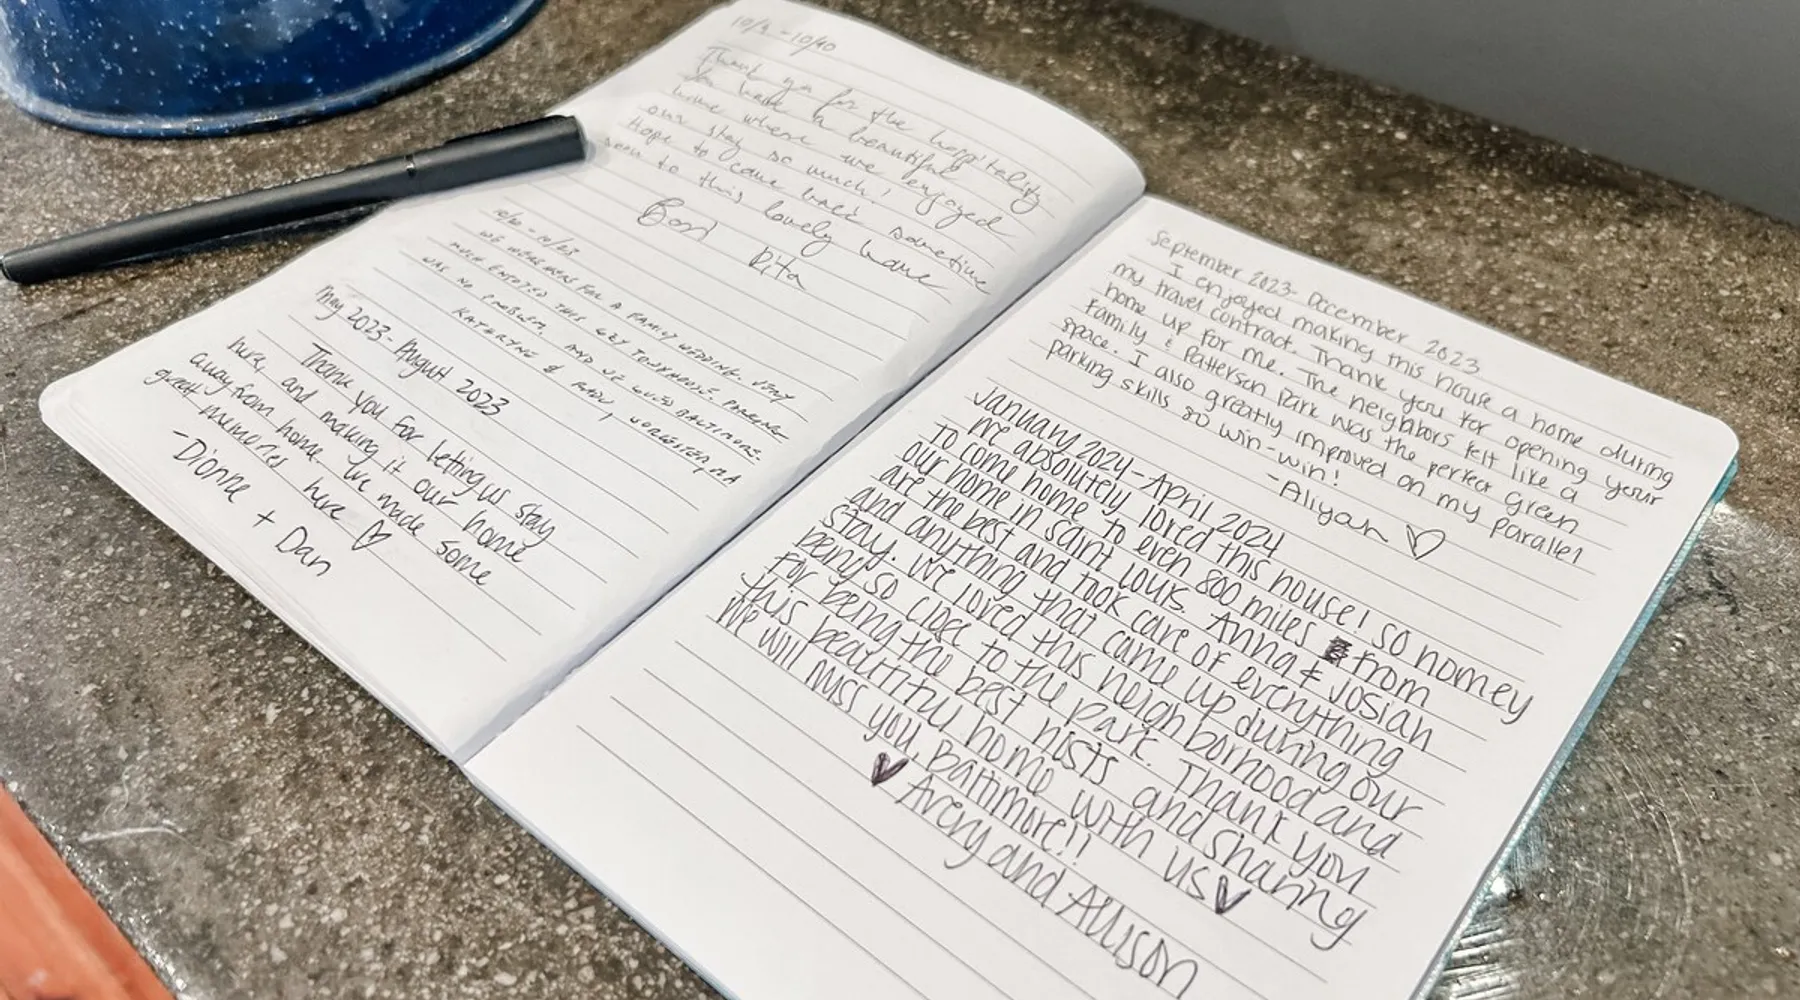 10/9 - 10/10
Thank you for the hospitality.
You have a beautiful
home where we enjoyed
our stay so much!
Hope to come back sometime
soon to this lovely home
Rita
10/20 - 10/23
WE WERE HERE FOR A FAMILY WEDDING. VERY
MUCH ENJOYED THIS COZY TOWNHOUSE. PARKING
WAS NO PROBLEM AND WE LOVED BALTIMORE.
KATHRYNE & RADU, WORCESTER, MA
May 2023 - August 2023
Thank you for letting us stay
here, and making it our home
away from home. We made some
great memories here ♡
- Dionne + Dan
September 2023 - December 2023
I enjoyed making this house a home during
my travel contract. Thank you for opening your
home up for me. The neighbors felt like a
family & Patterson Park was the perfect green
space. I also greatly improved on my parallel
parking skills so win-win!
- Aliyah ♡
January 2024 - April 2024
We absolutely loved this house! So homey
to come home to even 800 miles from
our home in Saint Louis. Anna & Josiah
are the best and took care of everything
and anything that came up during our
stay. We loved this neighborhood and
being so close to the park. Thank you
for being the best hosts and sharing
this beautiful home with us ♥
We will miss you, Baltimore!!
♥ Avery and Allison